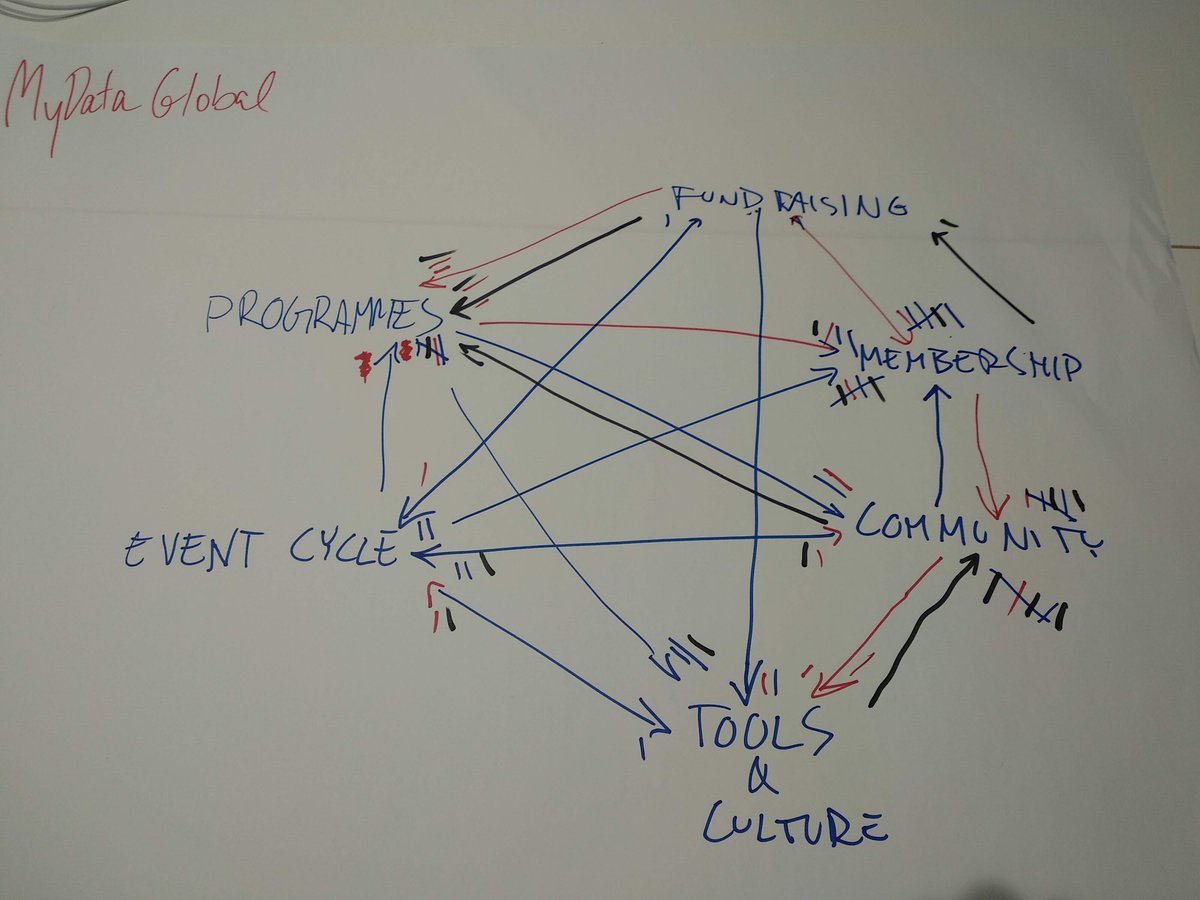 MyData Global
FUNDRAISING
PROGRAMMES
MEMBERSHIP
COMMUNITY
EVENT CYCLE
TOOLS
&
CULTURE